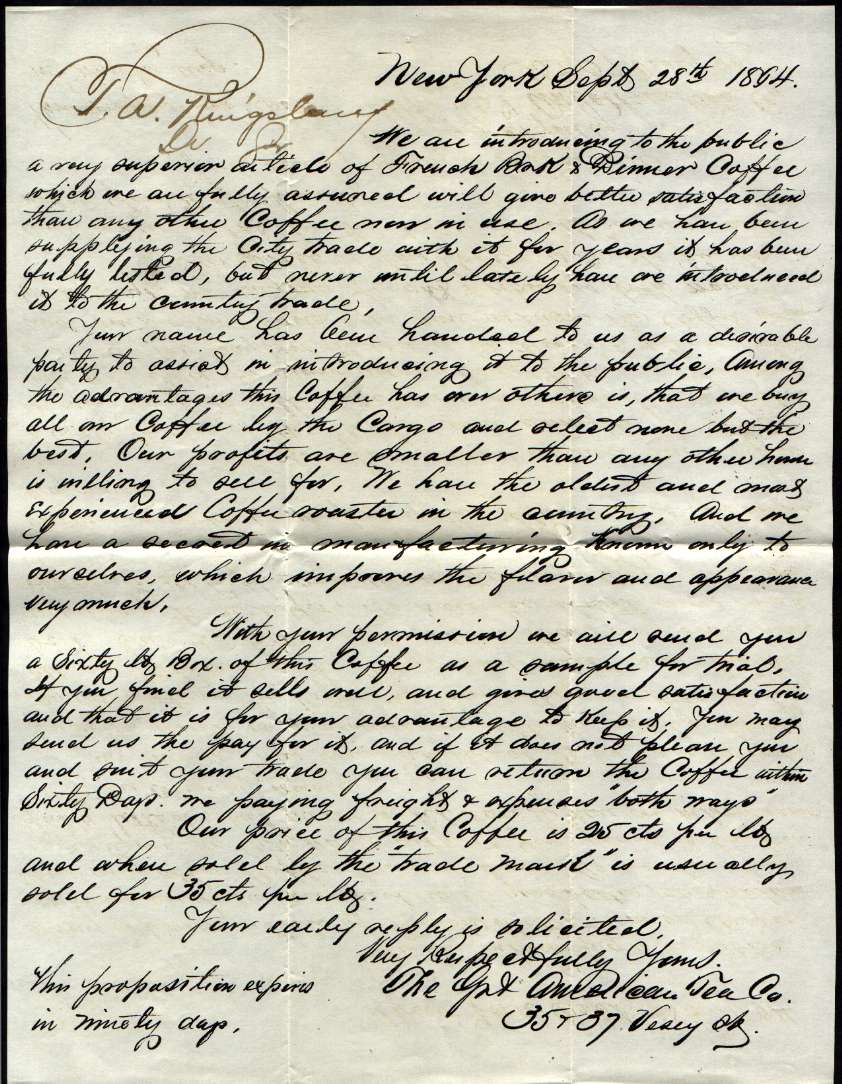 New York Sept 28th 1864.
T. W. Kingsbury
Dr Sir
We are introducing to the public
a very superior article of French Brk & Dinner Coffee
which we are fully assured will give better satisfaction
than any other Coffee now in use. As we have been
supplying the City trade with it for years it has been
fully tested, but never until lately have we introduced
it to the country trade,
Your name has been handed to us as a desirable
party to assist in introducing it to the public, Among
the advantages this Coffee has over others is, that we buy
all our Coffee by the Cargo and select none but the
best. Our profits are smaller than any other house
is willing to sell for. We have the oldest and most
experienced Coffee roaster in the country. And we
have a secret in manufacturing known only to
ourselves, which improves the flavor and appearance
very much.
With your permission we will send you
a Sixty lb Box. of this Coffee as a sample for trial.
If you find it sells well, and gives good satisfaction
and that it is for your advantage to keep it. You may
send us the pay for it, and if it does not please you
and suit your trade you can return the Coffee within
Sixty Days. we paying freight & expenses "both ways"
Our price of this Coffee is 25 cts per lb
and when sold by the "trade mark" is usually
sold for 35 cts per lb.
Your early reply is solicited.
Very Respectfully Yours.
The Grt American Tea Co.
35 & 37 Vesey St.
This proposition expires
in ninety days.